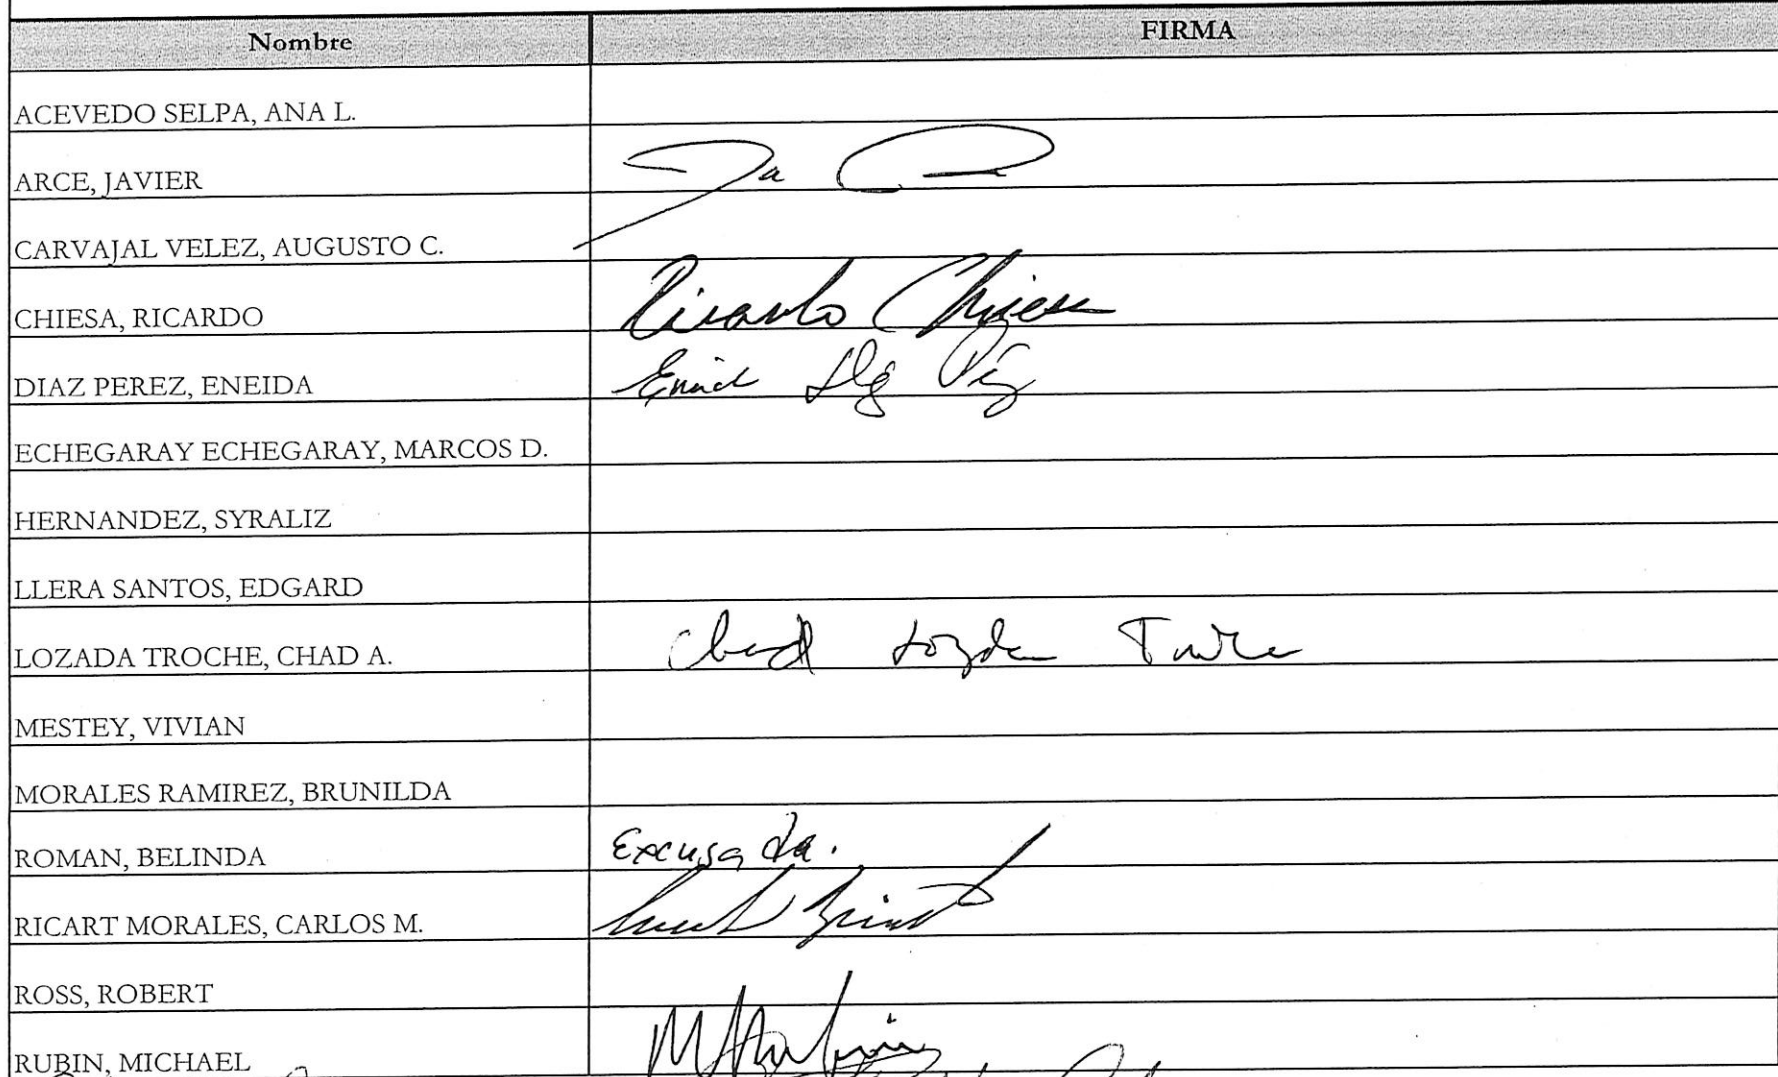 Nombre FIRMA
ACEVEDO SELPA, ANA L.
ARCE, JAVIER
CARVAJAL VELEZ, AUGUSTO C.
CHIESA, RICARDO Ricardo Chiesa
DIAZ PEREZ, ENEIDA
ECHEGARAY ECHEGARAY, MARCOS D.
HERNANDEZ, SYRALIZ
LLERA SANTOS, EDGARD
LOZADA TROCHE, CHAD A. Chad Lozada Troche
MESTEY, VIVIAN
MORALES RAMIREZ, BRUNILDA
ROMAN, BELINDA Excusada.
RICART MORALES, CARLOS M.
ROSS, ROBERT
RUBIN, MICHAEL